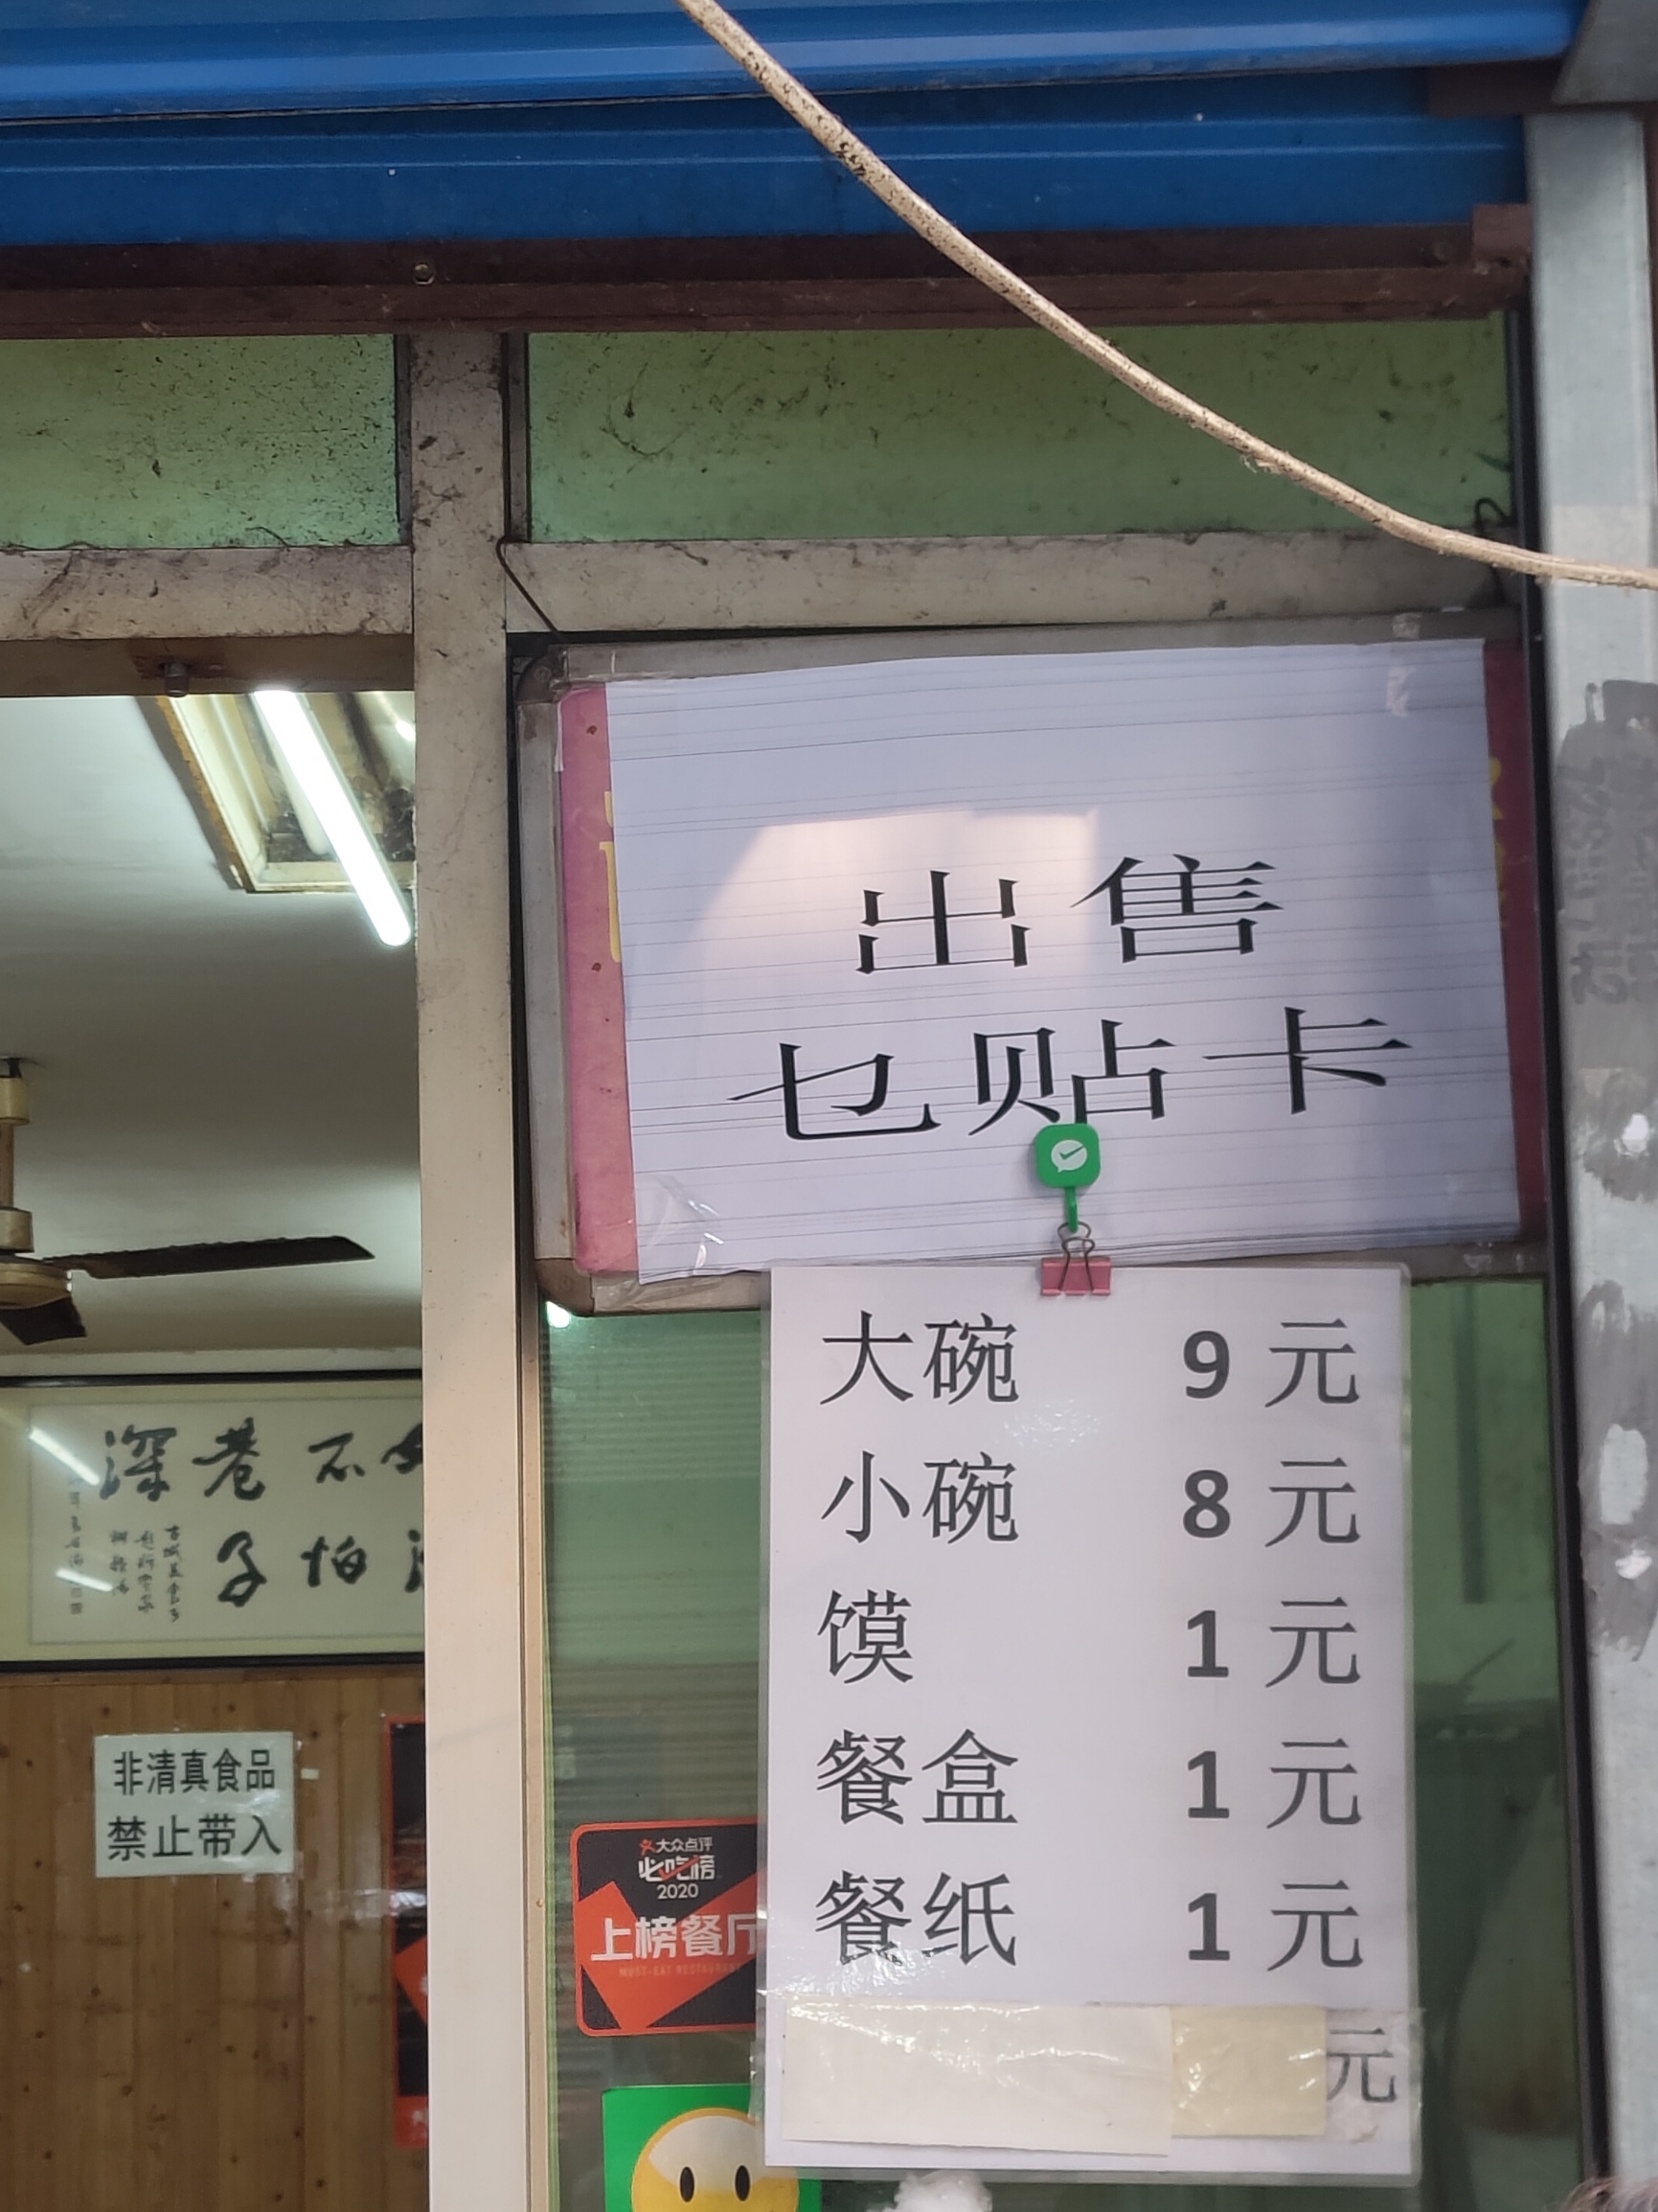 出售
乜贴卡
大碗 9 元
小碗 8 元
馍 1 元
餐盒 1 元
餐纸 1 元
元
深巷不
子怕
非清真食品
禁止带入
大众点评
必吃榜
2020
上榜餐厅
MUST-EAT RESTAURANT